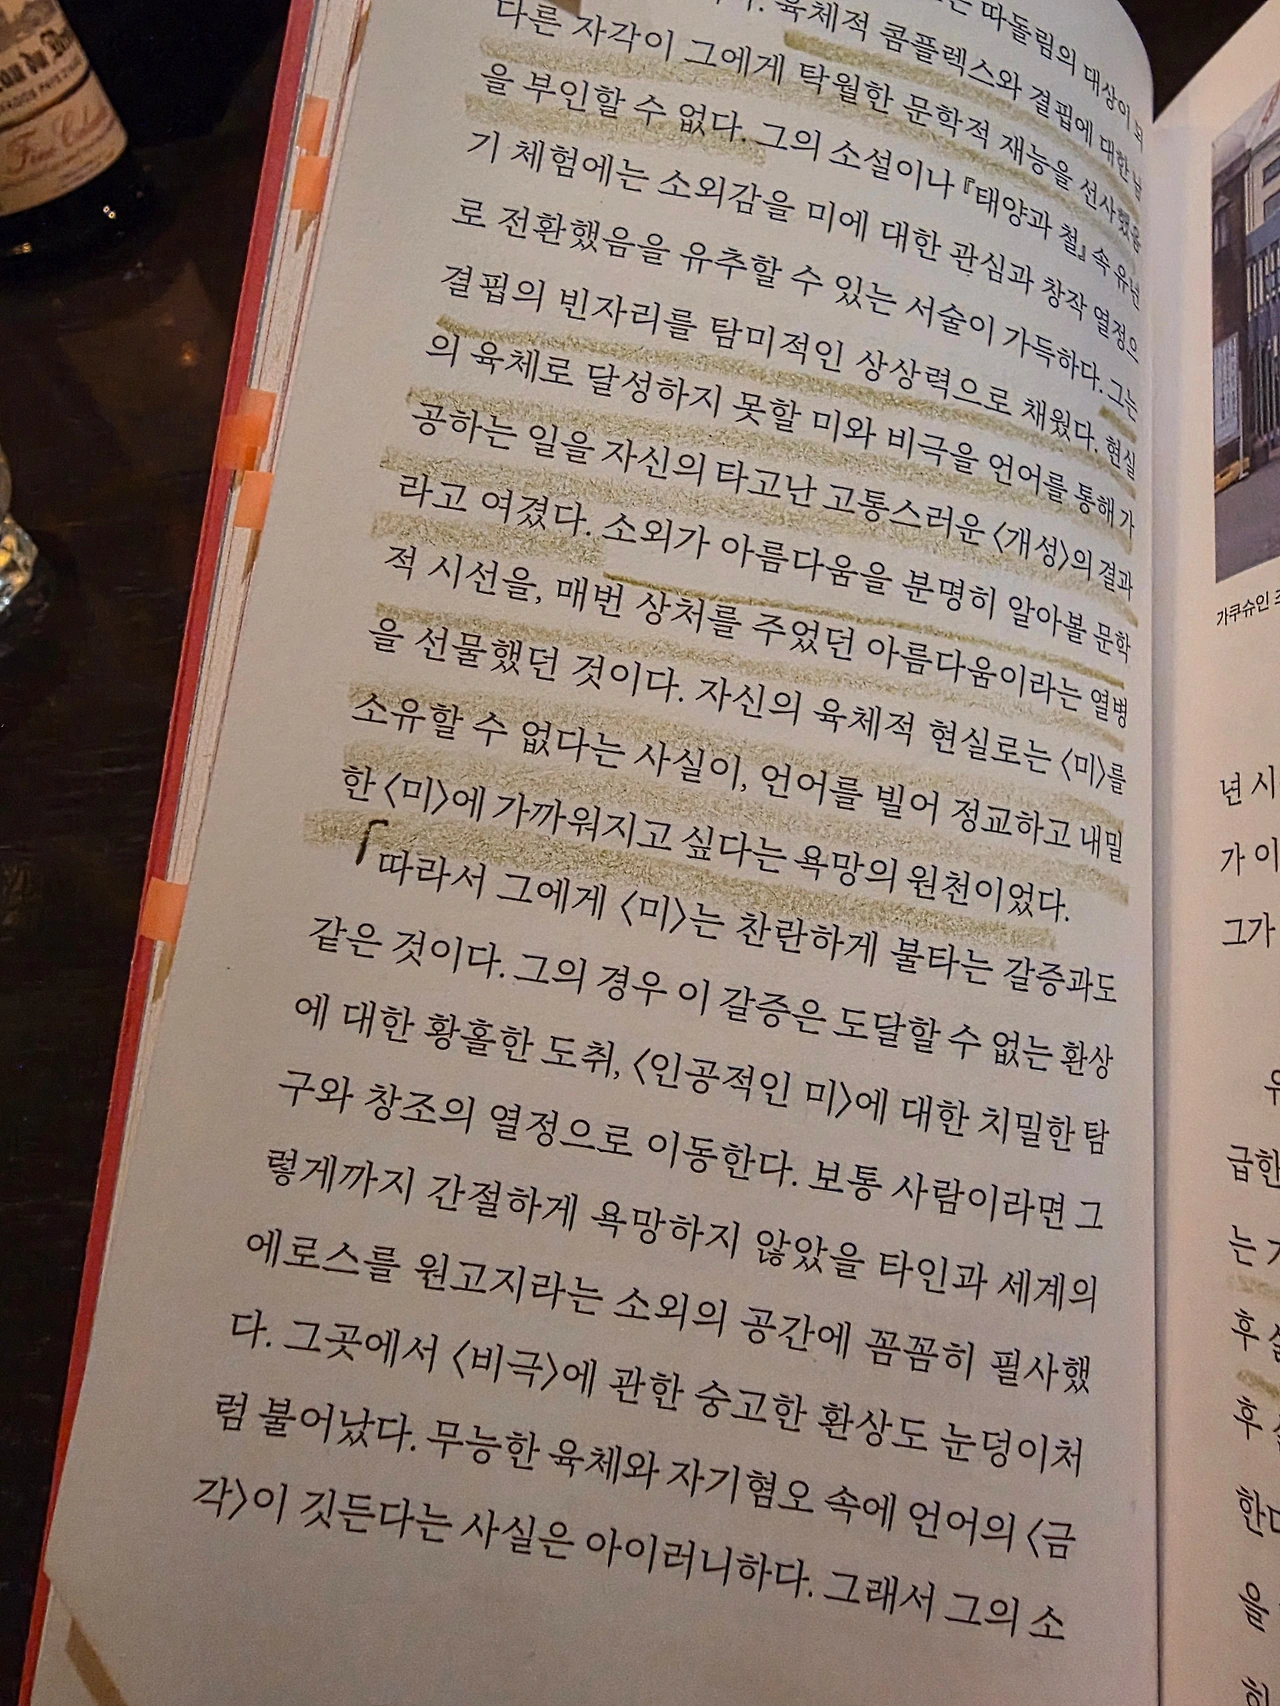 따돌림의 대상이 되
육체적 콤플렉스와 결핍에 대한 남
다른 자각이 그에게 탁월한 문학적 재능을 선사했음
을 부인할 수 없다. 그의 소설이나 『태양과 철』 속 유년
기 체험에는 소외감을 미에 대한 관심과 창작 열정으
로 전환했음을 유추할 수 있는 서술이 가득하다. 그는
결핍의 빈자리를 탐미적인 상상력으로 채웠다. 현실
의 육체로 달성하지 못할 미와 비극을 언어를 통해 가
공하는 일을 자신의 타고난 고통스러운 〈개성〉의 결과
라고 여겼다. 소외가 아름다움을 분명히 알아볼 문학
적 시선을, 매번 상처를 주었던 아름다움이라는 열병
을 선물했던 것이다. 자신의 육체적 현실로는 〈미〉를
소유할 수 없다는 사실이, 언어를 빌어 정교하고 내밀
한 〈미〉에 가까워지고 싶다는 욕망의 원천이었다.
따라서 그에게 〈미〉는 찬란하게 불타는 갈증과도
같은 것이다. 그의 경우 이 갈증은 도달할 수 없는 환상
에 대한 황홀한 도취, 〈인공적인 미〉에 대한 치밀한 탐
구와 창조의 열정으로 이동한다. 보통 사람이라면 그
렇게까지 간절하게 욕망하지 않았을 타인과 세계의
에로스를 원고지라는 소외의 공간에 꼼꼼히 필사했
다. 그곳에서 〈비극〉에 관한 숭고한 환상도 눈덩이처
럼 불어났다. 무능한 육체와 자기혐오 속에 언어의 〈금
각〉이 깃든다는 사실은 아이러니하다. 그래서 그의 소
가쿠슈인
년 시
가 이
그가
급한
는
후
후
을